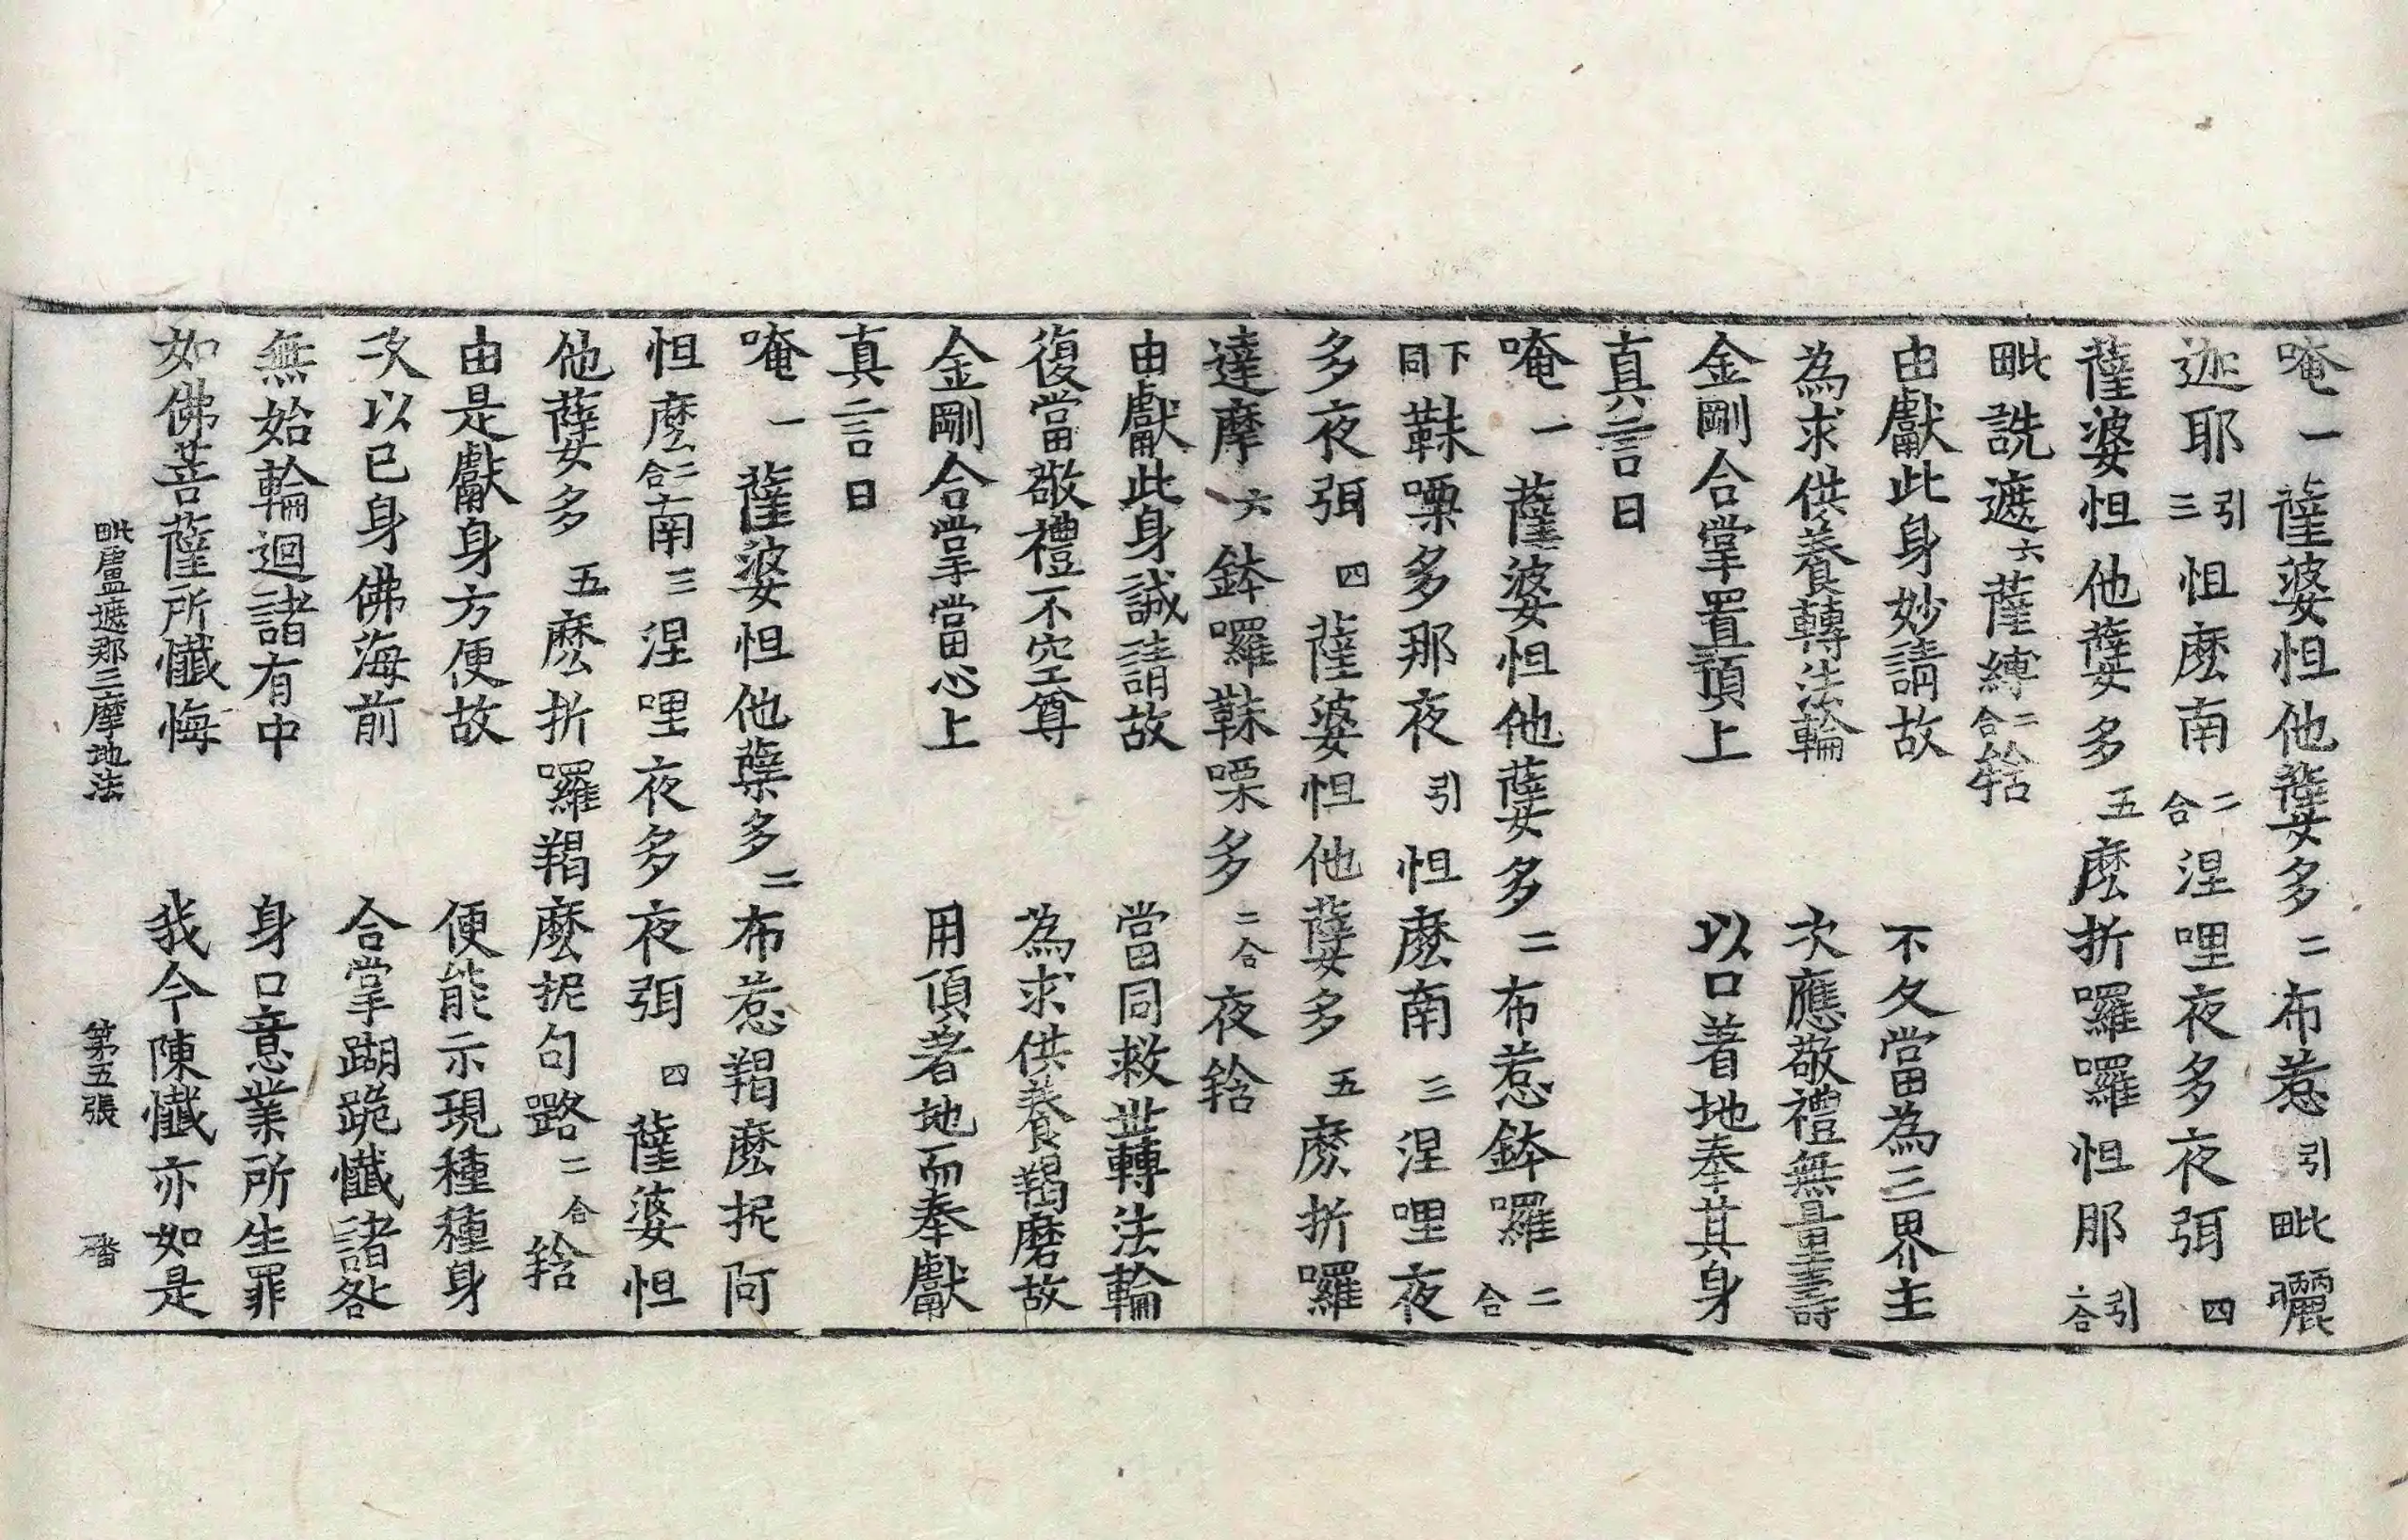 唵一薩婆怛他蘖多二布惹引毗曬
迦耶引三怛麽南二合涅哩夜多夜弭四
薩婆怛他蘖多五麽折囉囉怛那引二合
毗詵遮六薩縛二合𤚥
由獻此身妙請故　不久當為三界主
為求供養轉法輪　次應敬禮無量壽
金剛合掌置頂上　以口著地奉其身
真言曰
唵一薩婆怛他蘖多二布惹鉢囉二合
靺下同㗚多那夜引怛麽南三涅哩夜
多夜弭四薩婆怛他蘖多五麽折囉
達摩六鉢囉靺㗚多二合夜𤚥
由獻此身誠請故　當同救世轉法輪
復當敬禮不空尊　為求供養羯磨故
金剛合掌當心上　用頂著地而奉獻
真言曰
唵一薩婆怛他蘖多二布惹羯麽抳阿
怛麽二合南三涅哩夜多夜弭四薩婆怛
他蘖多五麽折囉羯麽抳句嚕二合𤚥
由是獻身方便故　便能示現種種身
次以己身佛海前　合掌蹰跪懺諸咎
無始輪迴諸有中　身口意業所生罪
如佛菩薩所懺悔　我今陳懺亦如是
毗盧遮那三摩地法　第五張